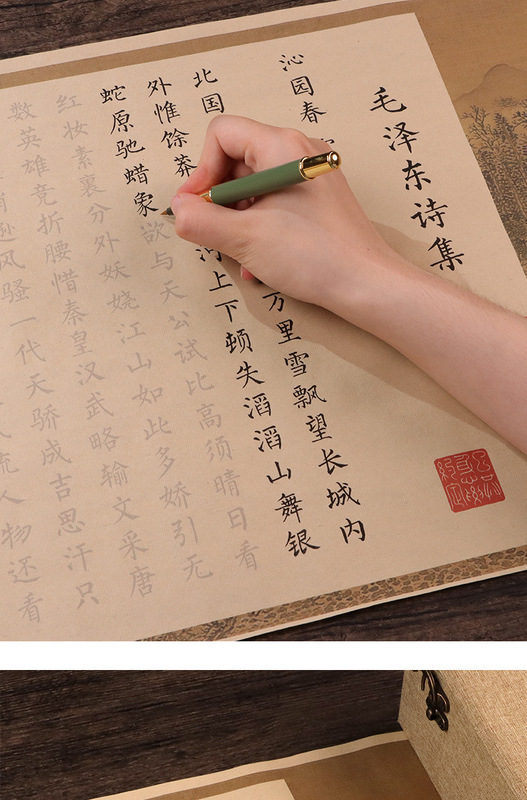 毛泽东诗集
沁园春
北国万里雪飘望长城内
外惟馀莽河上下顿失滔滔山舞银
蛇原驰蜡象欲与天公试比高须晴日看
红妆素裹分外妖娆江山如此多娇引无
数英雄竞折腰惜秦皇汉武略输文采唐
逊风骚一代天骄成吉思汗只
流人物还看